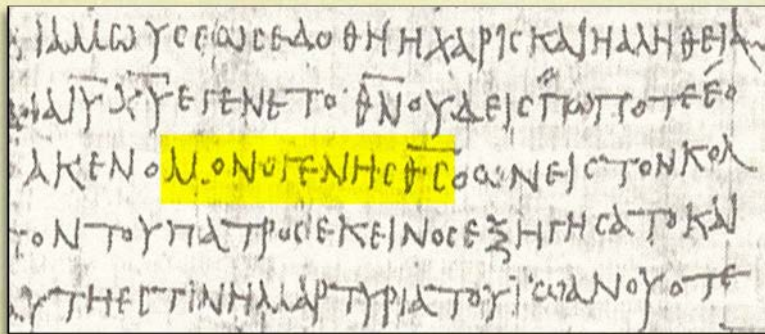 ΙΑΜΩΥϹΕΩϹΕΔΟΘΗΗΧΑΡΙϹΚΑΙΗΑΛΗΘΕΙΑ
ΔΙΑΙ̅Υ̅Χ̅Υ̅ΕΓΕΝΕΤΟΘ̅Ν̅ΟΥΔΕΙϹΠΩΠΟΤΕΕΟ
ΑΚΕΝΟΜΟΝΟΓΕΝΗϹΘ̅Ϲ̅ΟΩΝΕΙϹΤΟΝΚΟΛ
ΠΟΝΤΟΥΠΑΤΡΟϹΕΚΕΙΝΟϹΕΞΗΓΗϹΑΤΟΚΑΙ
ΑΥΤΗΕϹΤΙΝΗΜΑΡΤΥΡΙΑΤΟΥΙΩΑΝΟΥΟΤΕ